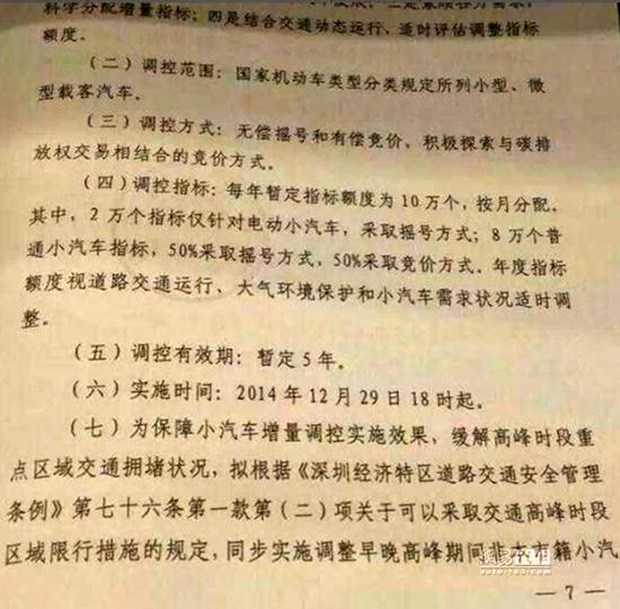 科学分配增量指标；四是结合交通动态运行，适时评估调整指标
额度。
（二）调控范围：国家机动车类型分类规定所列小型、微
型载客汽车。
（三）调控方式：无偿摇号和有偿竞价，积极探索与碳排
放权交易相结合的竞价方式。
（四）调控指标：每年暂定指标额度为 10 万个，按月分配。
其中，2 万个指标仅针对电动小汽车，采取摇号方式；8 万个普
通小汽车指标，50%采取摇号方式，50%采取竞价方式。年度指标
额度视道路交通运行、大气环境保护和小汽车需求状况适时调
整。
（五）调控有效期：暂定 5 年。
（六）实施时间：2014 年 12 月 29 日 18 时起。
（七）为保障小汽车增量调控实施效果，缓解高峰时段重
点区域交通拥堵状况，拟根据《深圳经济特区道路交通安全管理
条例》第七十六条第一款第（二）项关于可以采取交通高峰时段
区域限行措施的规定，同步实施调整早晚高峰期间非本市籍小汽
— 7 —